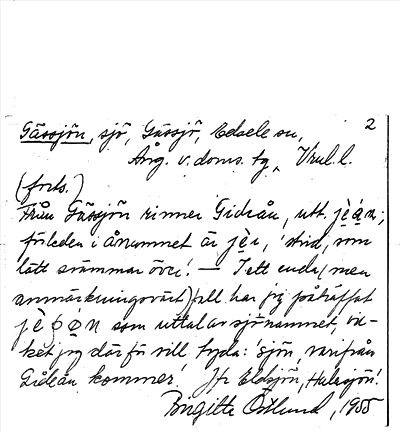 2
Gässjön, sjö, Gässjö, Edsele sn,
Ång. v. doms. tg, Vnl. l.
(forts.)
Från Gässjön rinner Gideån, utt.
förleden i ånamnet är 'strid, som
lätt svämmar över'. — I ett enda (men
anmärkningsvärt) fall har jag påträffat
som uttal av sjönamnet, vil-
ket jag därför vill tyda: 'sjön, varifrån
Gideån kommer'. Jfr Edsjön, Halasjön.
Birgitta Östlund, 1955